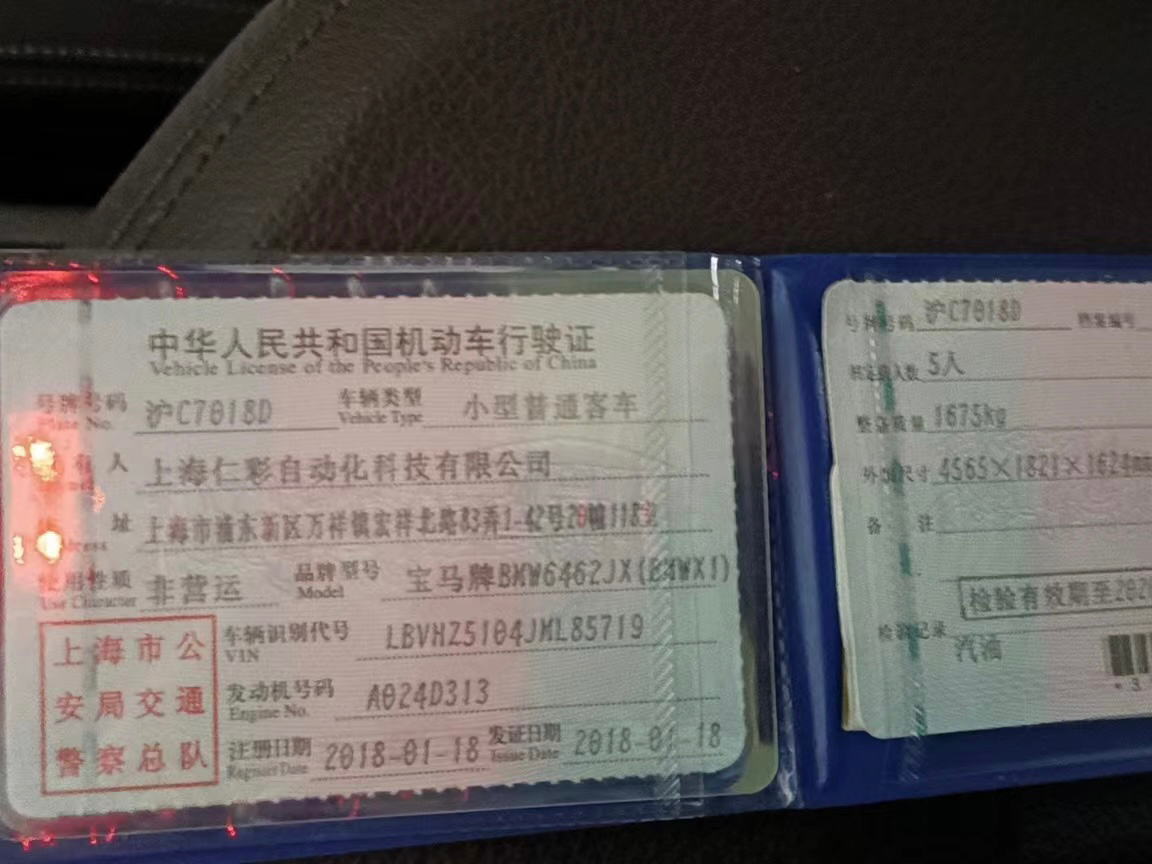 中华人民共和国机动车行驶证
Vehicle License of the People's Republic of China
号牌号码 沪C7018D 车辆类型 小型普通客车
Plate No. Vehicle Type
人 上海仁彩自动化科技有限公司
址 上海市浦东新区万祥镇宏祥北路83弄1-42号20幢118室
使用性质 非营运 品牌型号 宝马牌BMW6462JX(BMWX1)
Use Character Model
上海市公
安局交通
警察总队
车辆识别代号 LBVHZ5104JML85719
VIN
发动机号码 A024D313
Engine No.
注册日期 2018-01-18 发证日期 2018-01-18
Register Date Issue Date
号牌号码 沪C7018D 档案编号
核定载人数 5人
整备质量 1675kg
外廓尺寸 4565×1821×1624mm
备 注
检验有效期至202
检验记录
汽油
*3